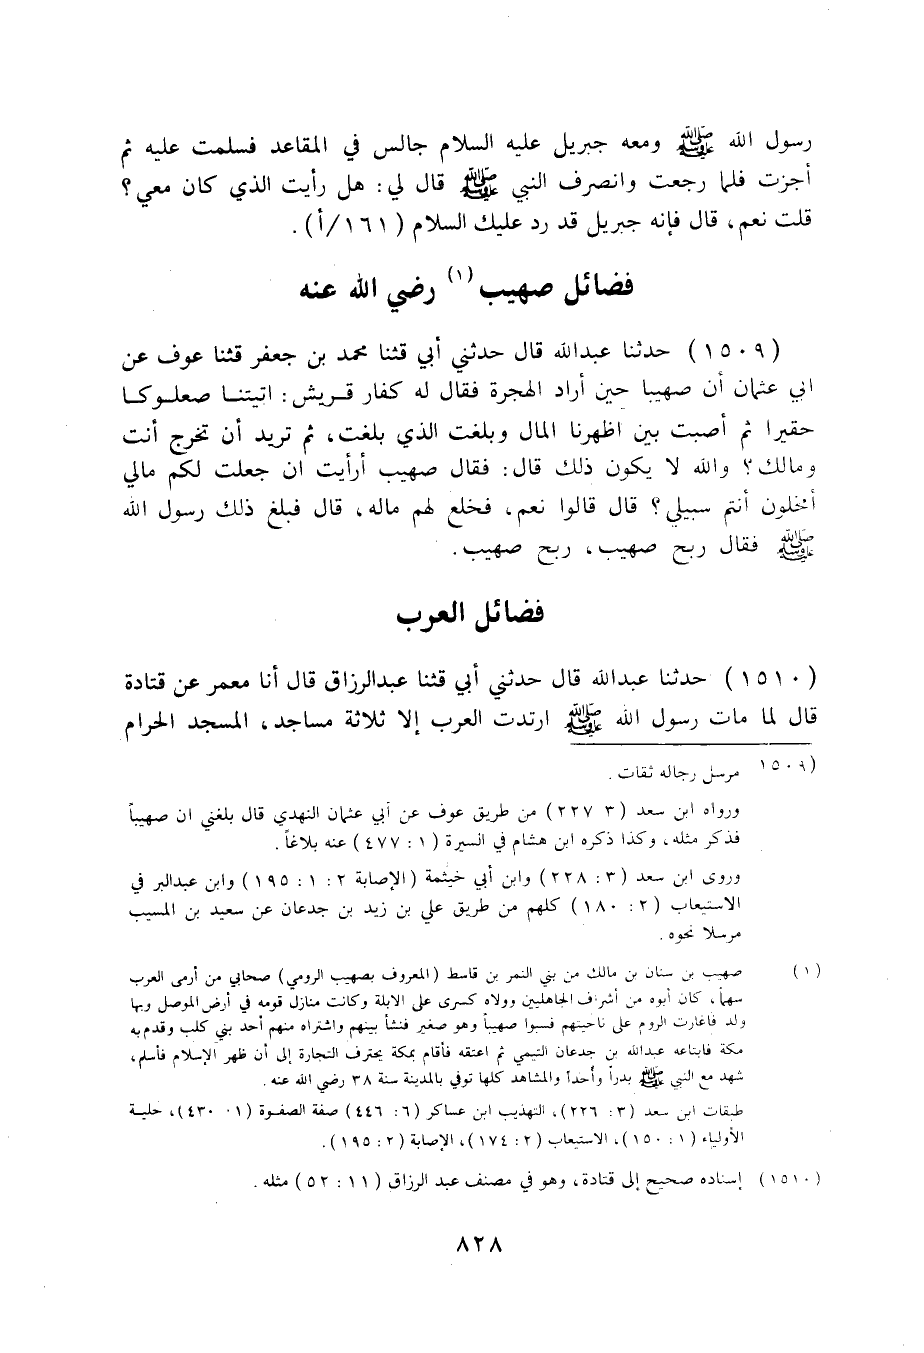 رسول الله ﷺ ومعه جبريل عليه السلام جالس في المقاعد فسلمت عليه ثم
أجزت فلما رجعت وانصرف النبي ﷺ قال لي: هل رأيت الذي كان معي؟
قلت نعم، قال فإنه جبريل قد رد عليك السلام (١٦١/أ).
فضائل صهيب(١) رضي الله عنه
(١٥٠٩) حدثنا عبدالله قال حدثني أبي قثنا محمد بن جعفر قثنا عوف عن
ابي عثمان أن صهيبا حين أراد الهجرة فقال له كفار قريش: اتيتنا صعلوكا
حقيرا ثم أصبت بين اظهرنا المال وبلغت الذي بلغت، ثم تريد أن تخرج أنت
ومالك؟ والله لا يكون ذلك قال: فقال صهيب أرأيت ان جعلت لكم مالي
أنخلون أنتم سبيلي؟ قال قالوا نعم، فخلع لهم ماله، قال فبلغ ذلك رسول الله
ﷺ فقال ربح صهيب، ربح صهيب.
فضائل العرب
(١٥١٠) حدثنا عبدالله قال حدثني أبي قثنا عبدالرزاق قال أنا معمر عن قتادة
قال لما مات رسول الله ﷺ ارتدت العرب إلا ثلاثة مساجد، المسجد الحرام
(١٥٠٩ مرسل رجاله ثقات.
ورواه ابن سعد (٣ ٢٢٧) من طريق عوف عن أبي عثمان النهدي قال بلغني ان صهيباً
فذكر مثله، وكذا ذكره ابن هشام في السيرة (١: ٤٧٧) عنه بلاغاً.
وروى ابن سعد (٣: ٢٢٨) وابن أبي خيثمة (الإصابة ٢: ١: ١٩٥) وابن عبدالبر في
الاستيعاب (٢: ١٨٠) كلهم من طريق علي بن زيد بن جدعان عن سعيد بن المسيب
مرسلا نحوه.
(١) صهيب بن سنان بن مالك من بني النمر بن قاسط (المعروف بصهيب الرومي) صحابي من أرمى العرب
سهماً، كان أبوه من أشراف الجاهليين وولاه كسرى على الابلة وكانت منازل قومه في أرض الموصل وبها
ولد فاغارت الروم على ناحيتهم فسبوا صهيباً وهو صغير فنشأ بينهم واشتراه منهم أحد بني كلب وقدم به
مكة فابتاعه عبدالله بن جدعان التيمي ثم اعتقه فأقام بمكة يحترف التجارة إلى أن ظهر الإسلام فأسلم،
شهد مع النبي ﷺ بدراً وأحداً والمشاهد كلها توفي بالمدينة سنة ٣٨ رضي الله عنه.
طبقات ابن سعد (٣: ٢٢٦)، التهذيب ابن عساكر (٦: ٤٤٦) صفة الصفوة (١ ٤٣٠)، حلية
الأولياء (١: ١٥٠)، الاستيعاب (٢: ١٧٤)، الإصابة (٢: ١٩٥).
(١٥١٠) إسناده صحيح إلى قتادة، وهو في مصنف عبد الرزاق (١١: ٥٢) مثله.
٨٢٨